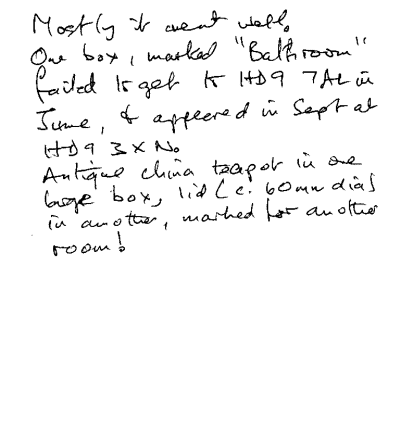 Mostly it went well.
One box, marked "Bathroom"
failed to get to HD9 7AL in
June, & appeared in Sept at
HD9 3XN.
Antique china teapot in one
large box, lid (c. 60mm dia)
in another, marked for another
room!